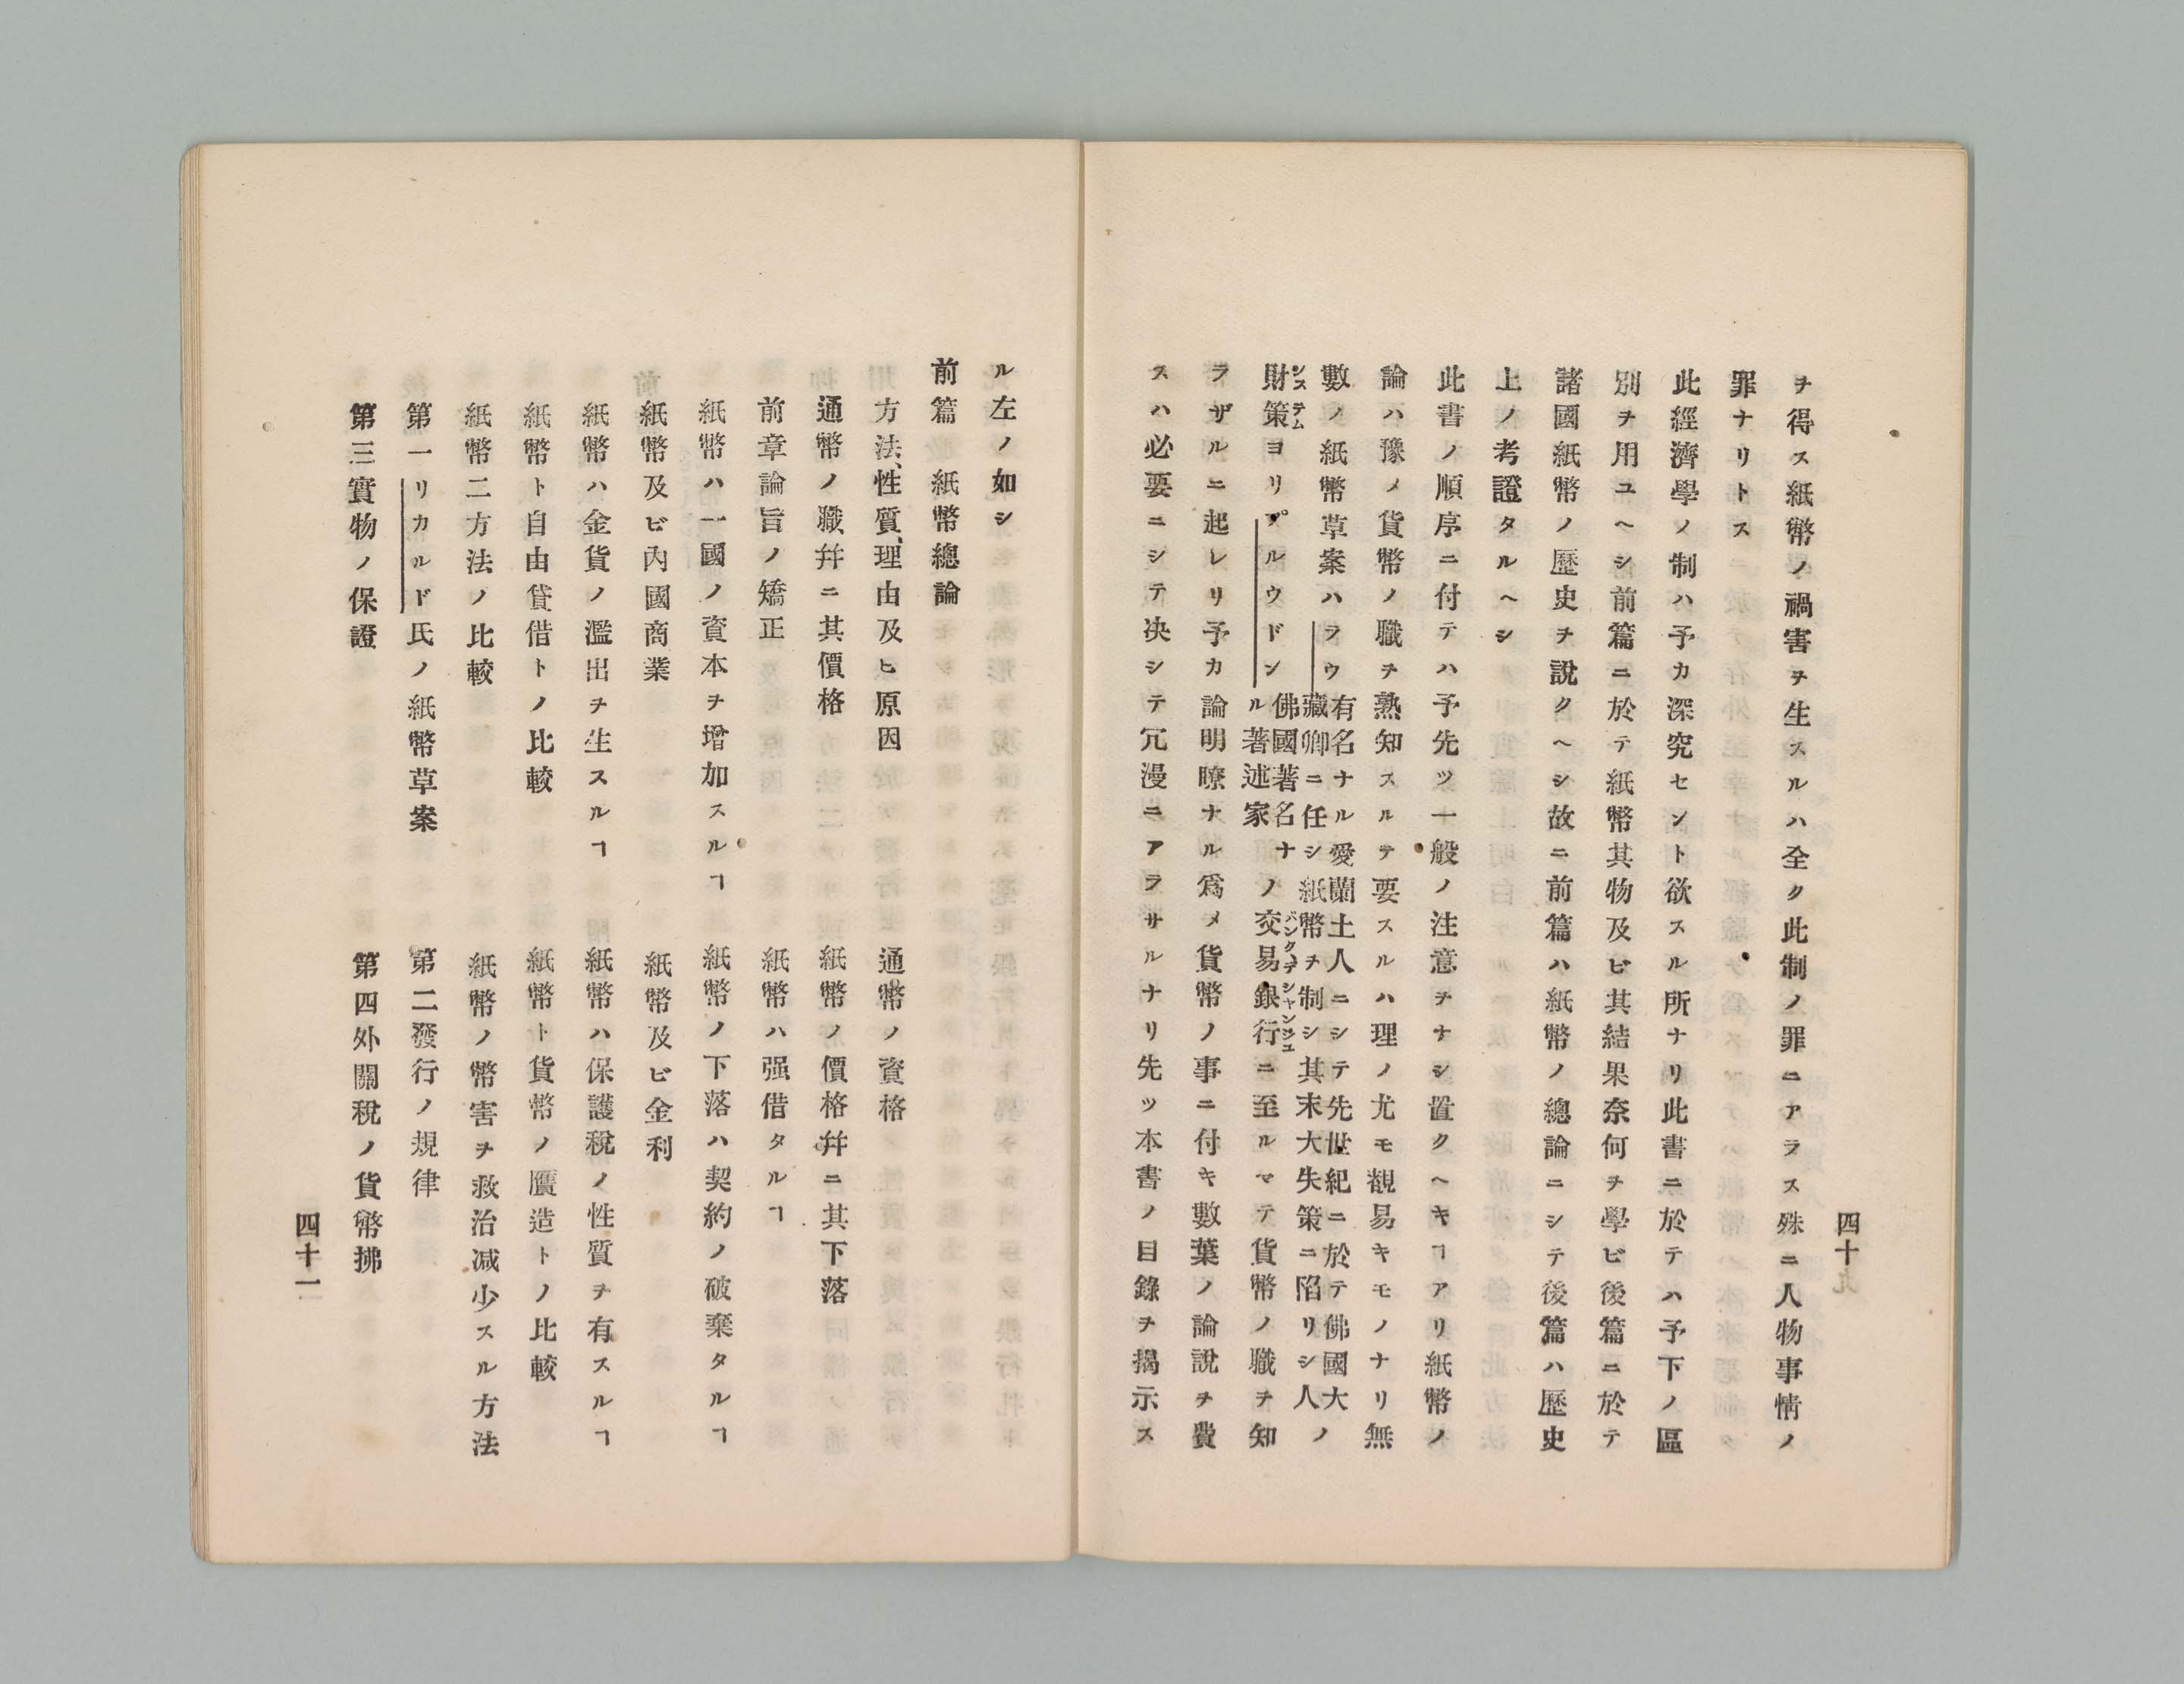 四十
ヲ得ス紙幣ノ禍害ヲ生スルハ全ク此制ノ罪ニアラス殊ニ人物事情ノ
罪ナリトス
此經濟學ノ制ハ予カ深究セント欲スル所ナリ此書ニ於テハ予下ノ區
別ヲ用ユヘシ前篇ニ於テ紙幣其物及ビ其結果奈何ヲ學ビ後篇ニ於テ
諸國紙幣ノ歷史ヲ說クヘシ故ニ前篇ハ紙幣ノ總論ニシテ後篇ハ歷史
上ノ考證タルヘシ
此書ノ順序ニ付テハ予先ツ一般ノ注意ヲナシ置クヘキヿアリ紙幣ノ
論ハ豫メ貨幣ノ職ヲ熟知スルヲ要スルハ理ノ尤モ観易キモノナリ無
數ノ紙幣草案ハラウ有名ナル愛蘭土人ニシテ先世紀ニ於テ佛國大藏卿ニ任シ紙幣ヲ制シ其末大失策ニ陷リシ人ノ
財策ヨリプルウドン佛國著名ナル著述家ノ交易銀行ニ至ルマテ貨幣ノ職ヲ知
システム
バンクデシャンジユ
ラザルニ起レリ予カ論明瞭ナル爲メ貨幣ノ事ニ付キ數葉ノ論說ヲ費
スハ必要ニシテ决シテ冗漫ニアラサルナリ先ツ本書ノ目錄ヲ揭示ス
ル左ノ如シ
前篇 紙幣總論
方法、性質、理由及ヒ原因 通幣ノ資格
通幣ノ職幷ニ其價格 紙幣ノ價格幷ニ其下落
前章論旨ノ矯正 紙幣ハ强借タルヿ
紙幣ハ一國ノ資本ヲ增加スルヿ 紙幣ノ下落ハ契約ノ破棄タルヿ
紙幣及ビ內國商業 紙幣及ビ金利
紙幣ハ金貨ノ濫出ヲ生スルヿ 紙幣ハ保護稅ノ性質ヲ有スルヿ
紙幣ト自由貸借トノ比較 紙幣ト貨幣ノ贋造トノ比較
紙幣二方法ノ比較 紙幣ノ幣害ヲ救治减少スル方法
第一リカルド氏ノ紙幣草案 第二發行ノ規律
第三實物ノ保證 第四外關稅ノ貨幣拂
四十一